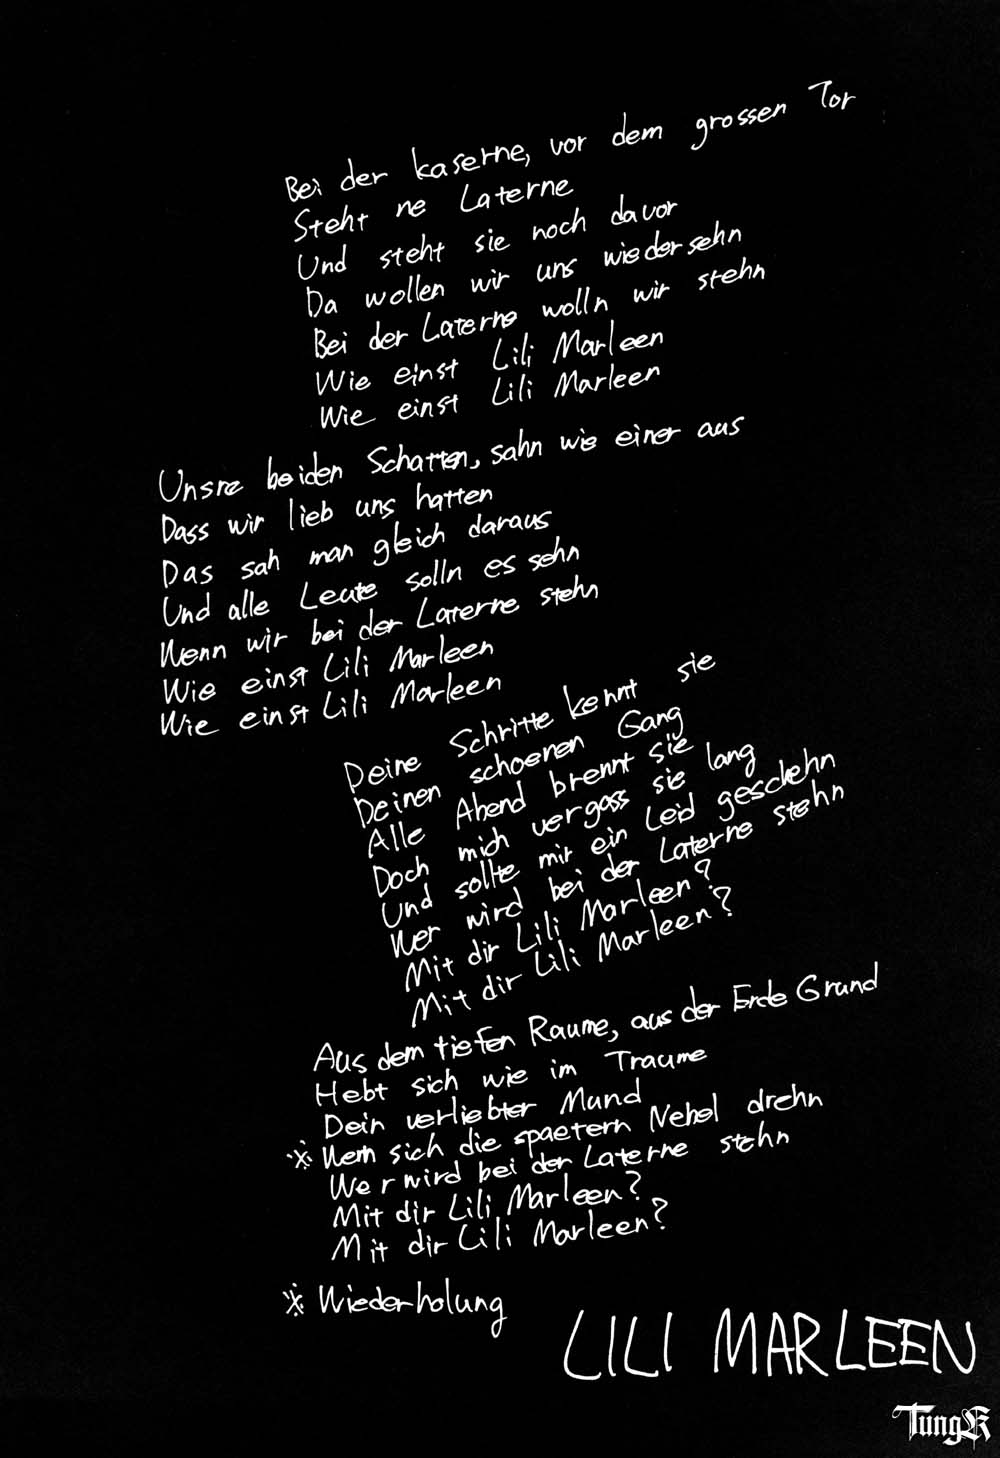 Bei der kaserne, vor dem grossen Tor
Steht ne Laterne
Und steht sie noch davor
Da wollen wir uns wiedersehn
Bei der Laterne wolln wir stehn
Wie einst Lili Marleen
Wie einst Lili Marleen
Unsre beiden Schatten, sahn wie einer aus
Dass wir lieb uns hatten
Das sah man gleich daraus
Und alle Leute solln es sehn
Wenn wir bei der Laterne stehn
Wie einst Lili Marleen
Wie einst Lili Marleen
Deine Schritte kennt sie
Deinen schoenen Gang
Alle Abend brennt sie
Doch mich vergass sie lang
Und sollte mir ein Leid geschehn
Wer wird bei der Laterne stehn
Mit dir Lili Marleen?
Mit dir Lili Marleen?
Aus dem tiefen Raume, aus der Erde Grund
Hebt sich wie im Traume
Dein verliebter Mund
※ Wenn sich die spaetern Nebel drehn
Wer wird bei der Laterne stehn
Mit dir Lili Marleen?
Mit dir Lili Marleen?
※ Wiederholung
LILI MARLEEN
TungK